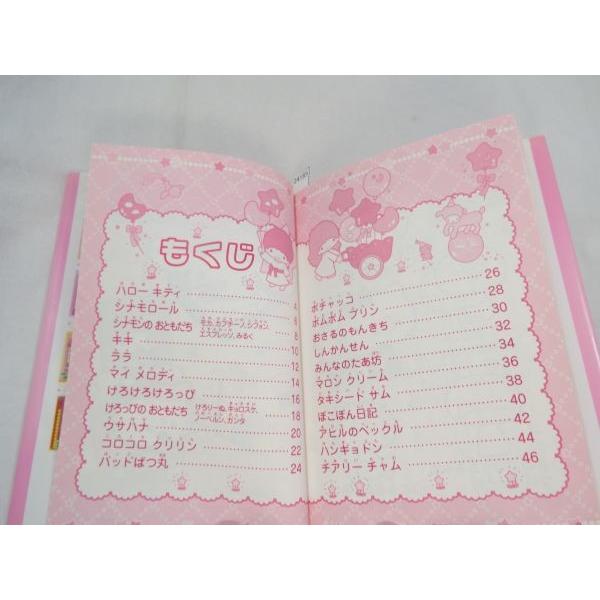 もくじ
ハロー キティ 4
シナモロール 6
シナモンの おともだち モカ、カプチーノ、シフォン、 8
エスプレッソ、みるく
キキ 10
ララ 12
マイ メロディ 14
けろけろけろっぴ 16
けろっぴの おともだち けろりーぬ、キョロスケ、 18
ノーベルン、ガンタ
ウサハナ 20
コロコロ クリリン 22
バッドばつ丸 24
ポチャッコ 26
ポムポム プリン 28
おさるのもんきち 30
しんかんせん 32
みんなのたあ坊 34
マロン クリーム 36
タキシード サム 38
ぽこぽん日記 40
アヒルのペックル 42
ハンギョドン 44
チアリー チャム 46